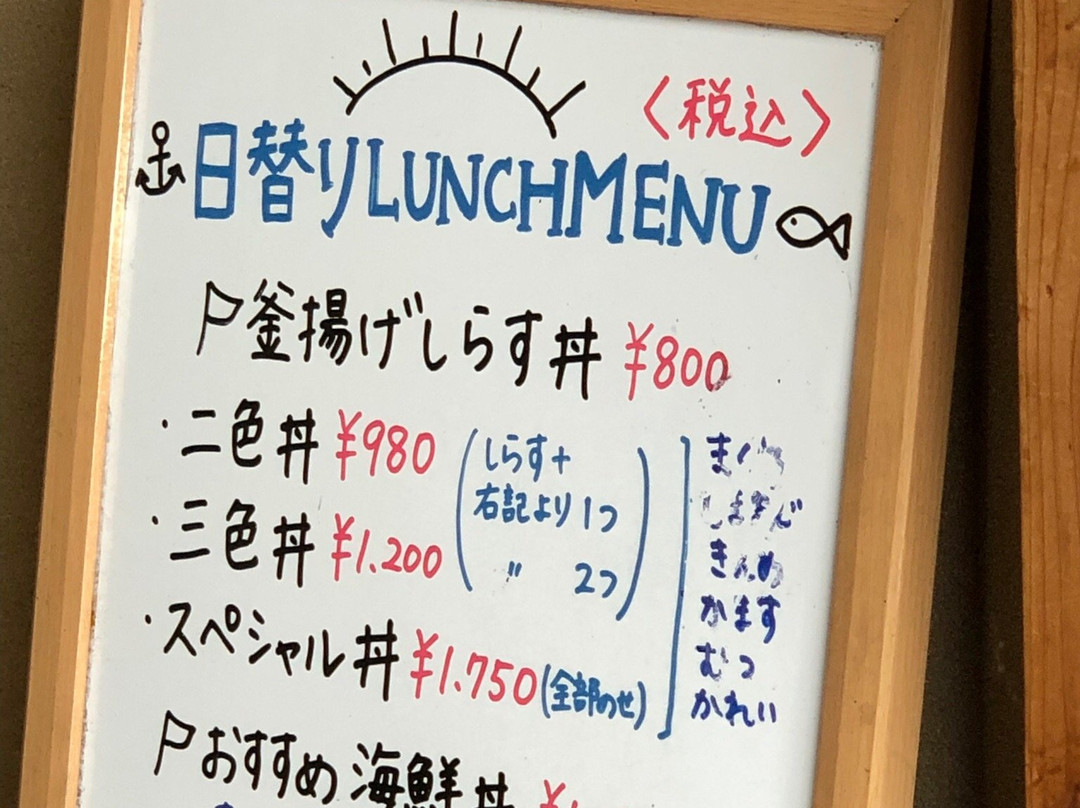 〈税込〉
日替りLUNCHMENU
釜揚げしらす丼 ¥800
・二色丼 ¥980 (しらす+
右記より1つ
・三色丼 ¥1.200
〃 2つ)
・スペシャル丼 ¥1.750(全部のせ)
きんめ
かます
むつ
かれい
おすすめ海鮮丼